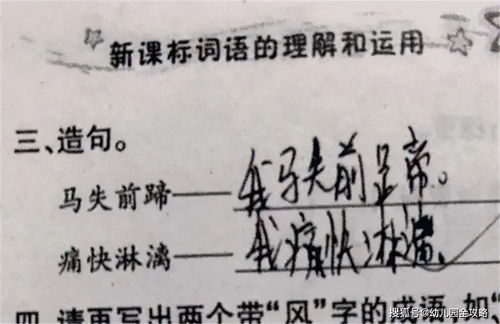 新课标词语的理解和运用
三、造句。
马失前蹄——我马失前蹄。
痛快淋漓——我痛快淋漓。
四、请再写出两个带“风”字的成语，如“
搜狐号@幼儿园全攻略